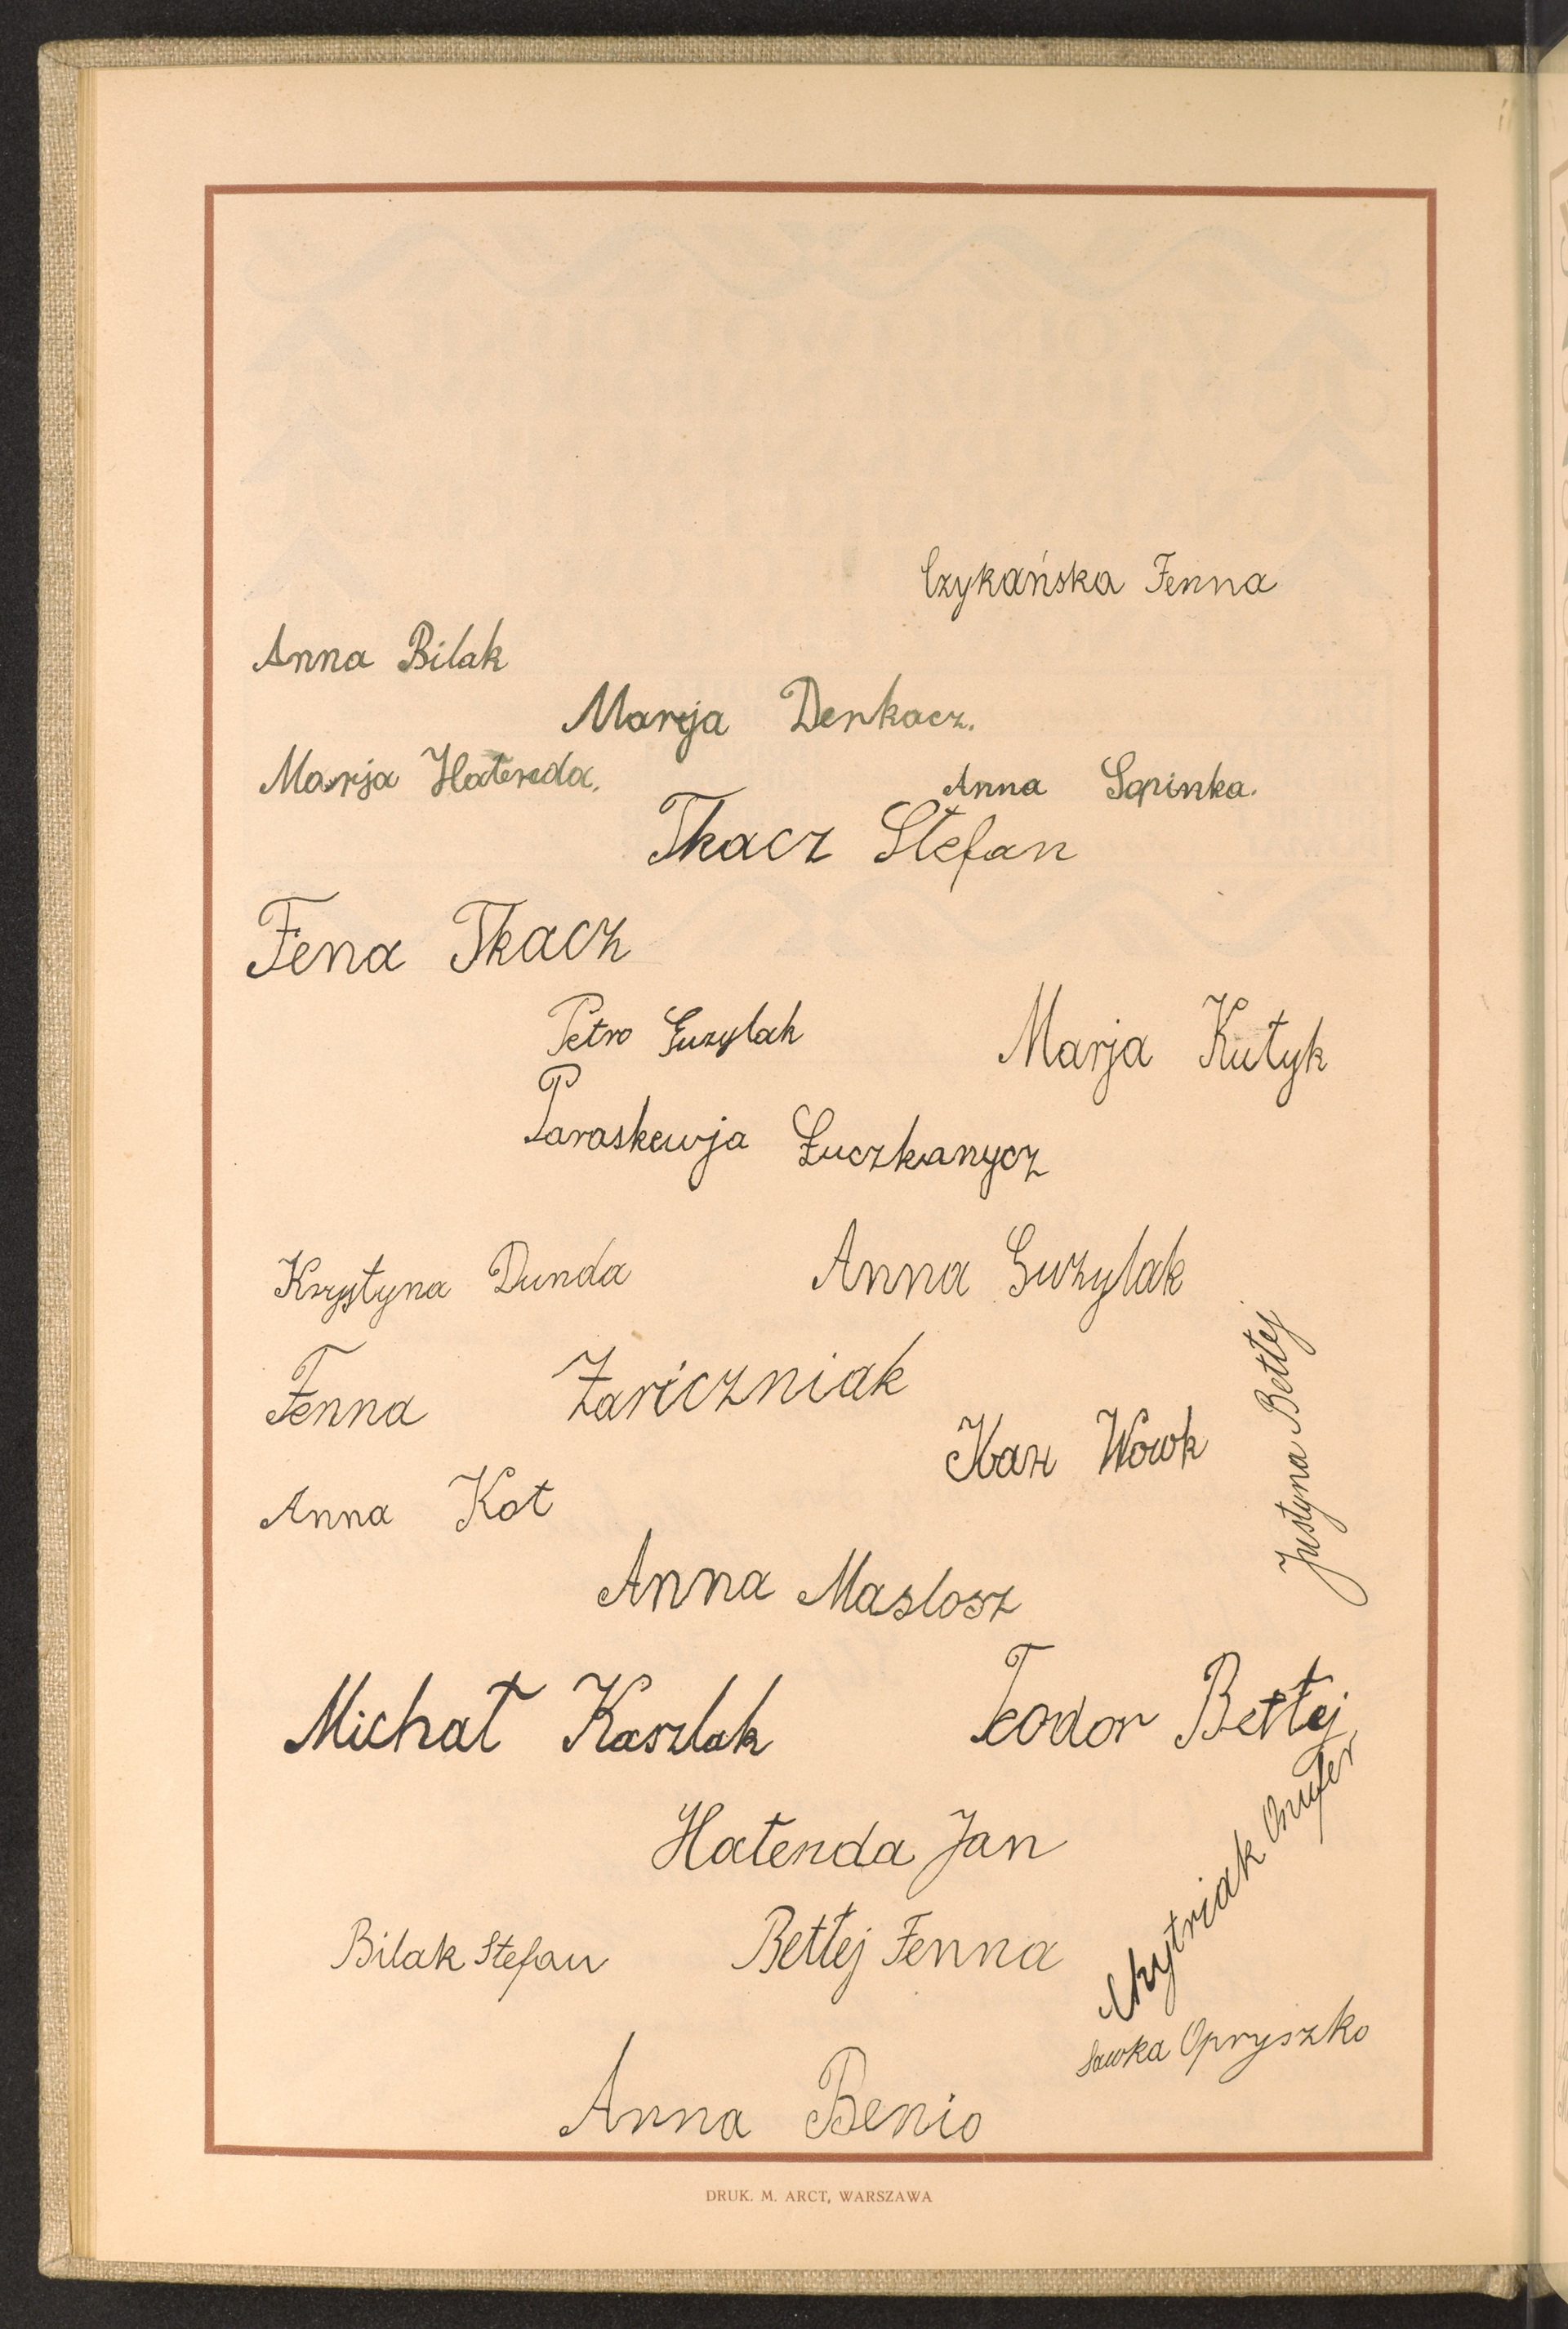 Czykańska Fenna
Anna Bilak
Marja Derkacz.
Marja Hałenda.
Anna Sapinka.
Tkacz Stefan
Fena Tkacz
Petro Guzylak
Marja Kutyk
Paraskewja Łuczkanycz
Krystyna Dunda
Anna Guzylak
Fenna Zariczniak
Justyna Bettej
Kaz Wowk
Anna Kot
Anna Maslosz
Michał Kaszlak
Teodor Bettej
Hałenda Jan
Chytriak Onufer
Bilak Stefan
Bettej Fenna
Sawka Opryszko
Anna Benio
DRUK. M. ARCT, WARSZAWA